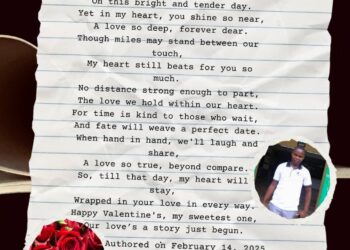 On this bright and tender day.
Yet in my heart, you shine so near,
A love so deep, forever dear.
Though miles may stand between our
touch,
My heart still beats for you so
much.
No distance strong enough to part,
The love we hold within our heart.
For time is kind to those who wait,
And fate will weave a perfect date.
When hand in hand, we'll laugh and
share,
A love so true, beyond compare.
So, till that day, my heart will
stay,
Wrapped in your love in every way.
Happy Valentine's, my sweetest one,
Our love's a story just begun.
Authored on February 14, 2025